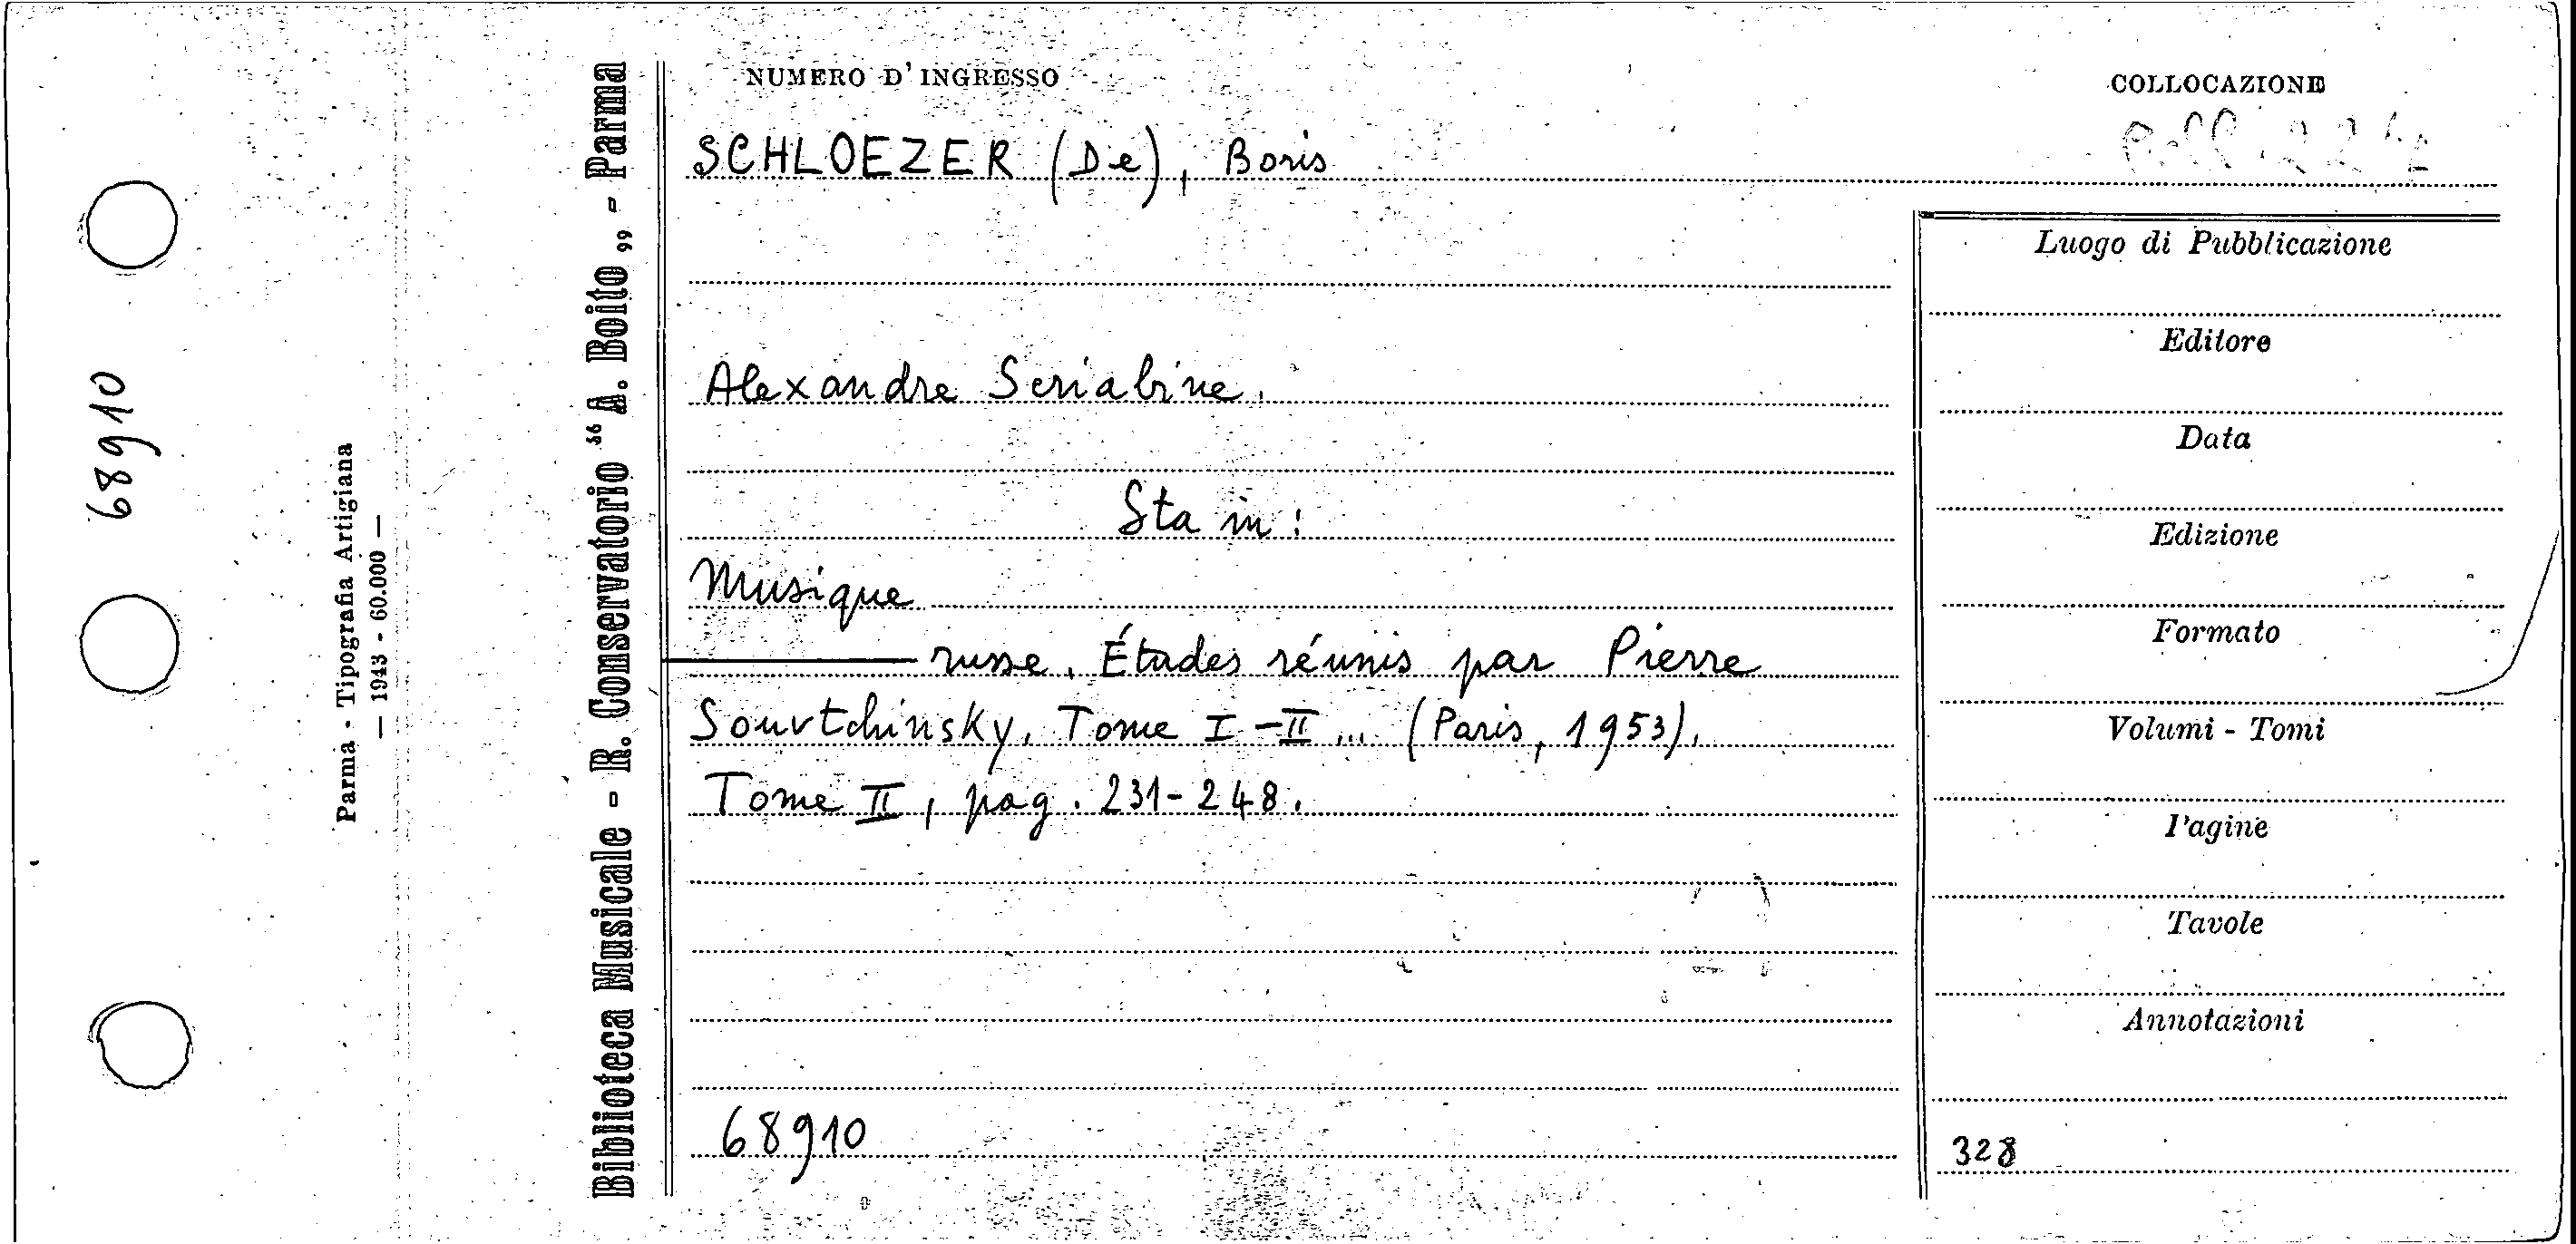 NUMERO D'INGRESSO
COLLOCAZIONE
SCHLOEZER (De), Boris
Alexandre Scriabine.
Sta in:
Musique
russe. Études réunis par Pierre
Souvtchinsky. Tome I-II... (Paris, 1953).
Tome II, pag. 231-248.
68910
Luogo di Pubblicazione
Editore
Data
Edizione
Formato
Volumi - Tomi
Pagine
Tavole
Annotazioni
328
68910
Parma - Tipografia Artigiana
— 1943 - 60.000 —
Biblioteca Musicale - R. Conservatorio “A. Boito„ - Parma